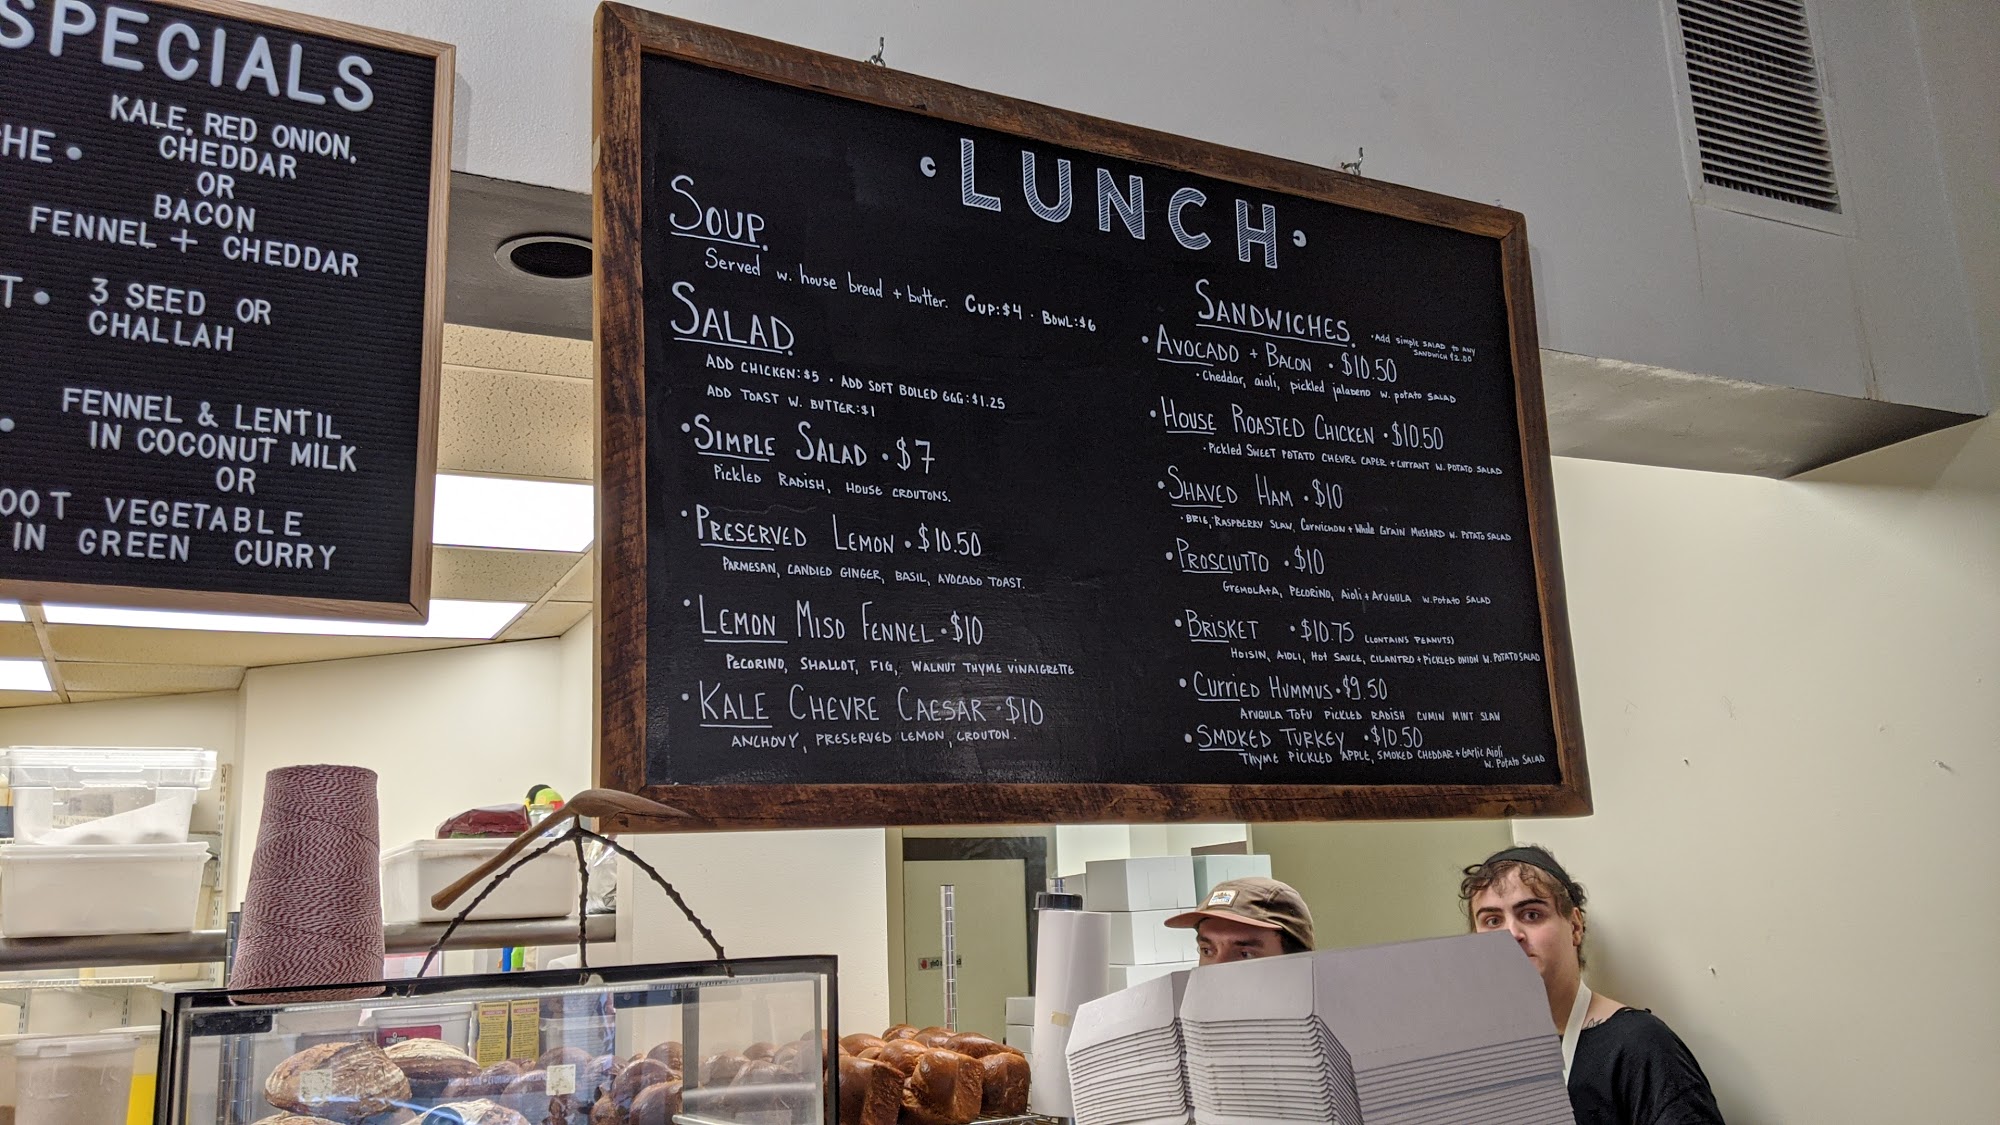 SPECIALS
KALE, RED ONION,
CHEDDAR
HE •
OR
BACON
FENNEL + CHEDDAR
T • 3 SEED OR
CHALLAH
FENNEL & LENTIL
IN COCONUT MILK
OR
OOT VEGETABLE
IN GREEN CURRY
LUNCH
SOUP.
Served w. house bread + butter. CUP:$4 · BOWL:$6
SALAD
ADD CHICKEN:$5 · ADD SOFT BOILED GGG:$1.25
ADD TOAST W. BUTTER:$1
• SIMPLE SALAD · $7
PICKLED RADISH, HOUSE CROUTONS.
• PRESERVED LEMON · $10.50
PARMESAN, CANDIED GINGER, BASIL, AVOCADO TOAST.
• LEMON MISO FENNEL · $10
PECORINO, SHALLOT, FIG, WALNUT THYME VINAIGRETTE
• KALE CHEVRE CAESAR · $10
ANCHOVY, PRESERVED LEMON, CROUTON.
SANDWICHES.
• Add simple SALAD to ANY
SANDWICH $2.00
• AVOCADO + BACON · $10.50
• Cheddar, aioli, pickled jalapeno w. potato SALAD
• HOUSE ROASTED CHICKEN · $10.50
• Pickled SWEET POTATO CHEVRE CAPER + CURRANT W. POTATO SALAD
• SHAVED HAM · $10
• BRIE, RASPBERRY SLAW, Cornichon + Whole Grain Mustard W. POTATO SALAD
• PROSCIUTTO · $10
GREMOLATA, PECORINO, Aioli + ARUGULA W. Potato SALAD
• BRISKET • $10.75 (CONTAINS PEANUTS)
HOISIN, AIOLI, HOT SAUCE, CILANTRO + PICKLED ONION W. POTATO SALAD
• CURRIED HUMMUS · $9.50
ARUGULA TOFU PICKLED RADISH CUMIN MINT SLAW
• SMOKED TURKEY · $10.50
THYME PICKLED APPLE, SMOKED CHEDDAR + GARLIC Aioli
W. Potato SALAD